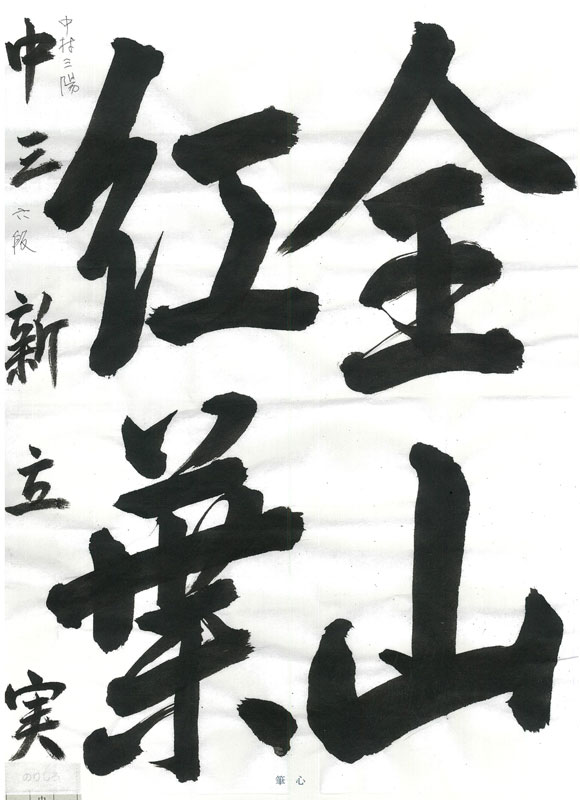 全山
紅葉
中三 新立 実
中村三陽
六段
心筆